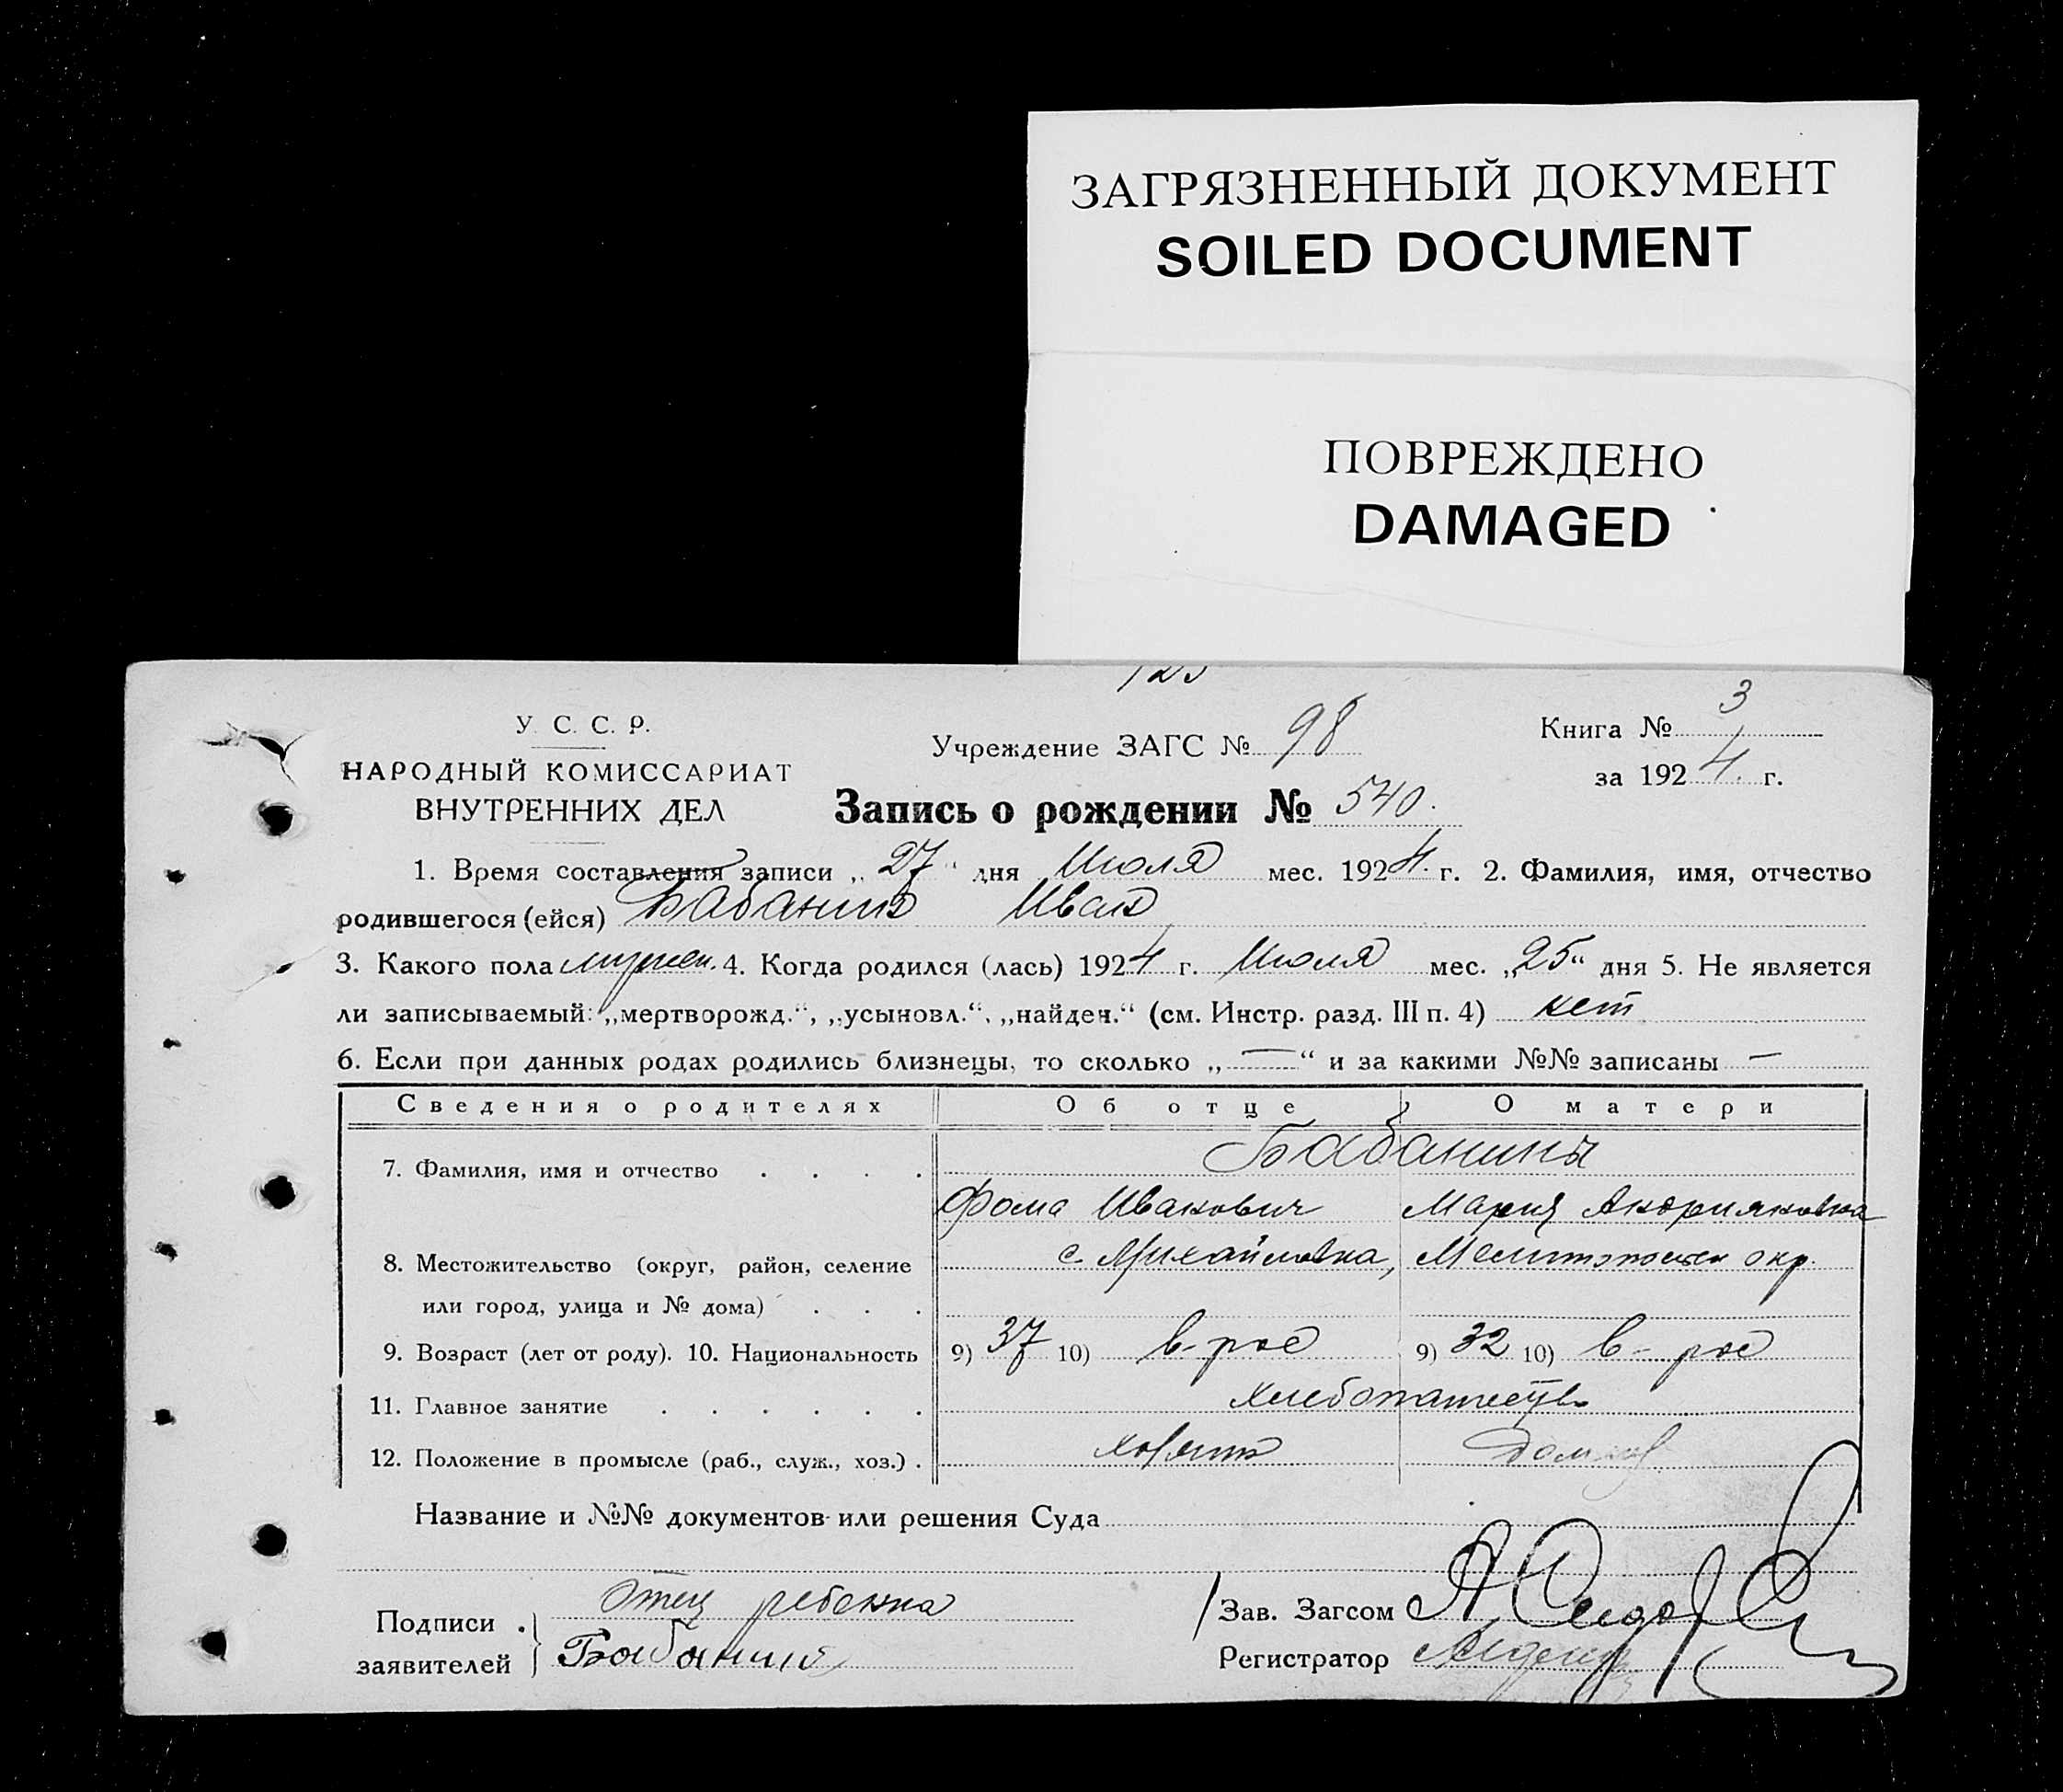 ЗАГРЯЗНЕННЫЙ ДОКУМЕНТ
SOILED DOCUMENT
ПОВРЕЖДЕНО
DAMAGED
У. С. С. Р.
НАРОДНЫЙ КОМИССАРИАТ
ВНУТРЕННИХ ДЕЛ
Учреждение ЗАГС № 98
Книга № 3
за 1924 г.
Запись о рождении № 540.
1. Время составления записи „27“ дня Июля мес. 1924. г. 2. Фамилия, имя, отчество
родившегося (ейся) Бабанин Иван
3. Какого пола мужск. 4. Когда родился (лась) 1924 г. Июля мес. „25“ дня 5. Не является
ли записываемый: „мертворожд.“, „усыновл.“, „найден.“ (см. Инстр. разд. III п. 4) нет
6. Если при данных родах родились близнецы, то сколько „—“ и за какими №№ записаны —
Сведения о родителях Об отце О матери
7. Фамилия, имя и отчество . . . . Бабанины
Фома Иванович Мария Андрияновна
8. Местожительство (округ, район, селение с. Михайловка, Мелитопольск окр.
или город, улица и № дома) . . .
9. Возраст (лет от роду). 10. Национальность 9) 37 10) в-рос 9) 32 10) в-рос
11. Главное занятие . . . . . . хлебопашество
12. Положение в промысле (раб., служ., хоз.) . хозяин
Название и №№ документов или решения Суда
Подписи заявителей
Отец ребенка
Бабанин
Зав. Загсом
Регистратор